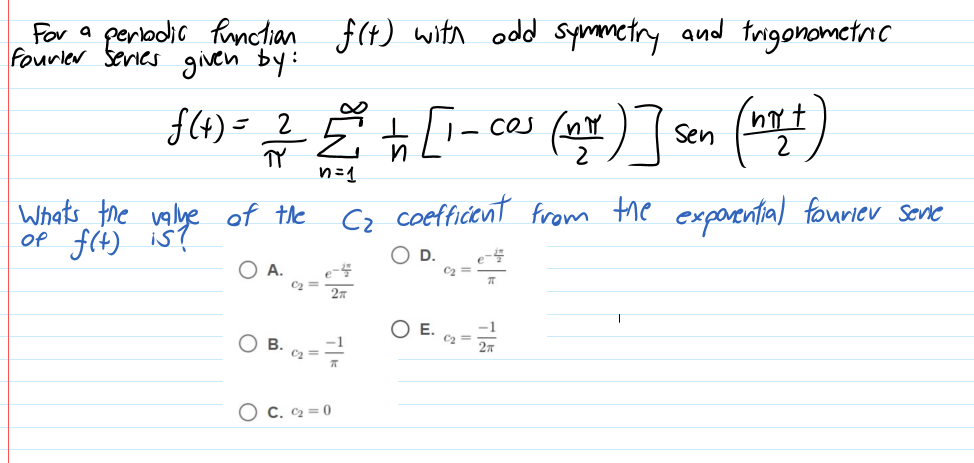 For a periodic function f(t) with odd symmetry and trigonometric
fourier series given by:
f(t) = 2/π ∑ n=1 ∞ 1/n [1 - cos (nπ/2)] sen (nπt/2)
Whats the value of the C₂ coefficient from the exponential fourier serie
of f(t) is?
A. c₂ = e^(-jπ/2)/2π
D. c₂ = e^(-jπ/2)/π
B. c₂ = -1/π
E. c₂ = -1/2π
C. c₂ = 0